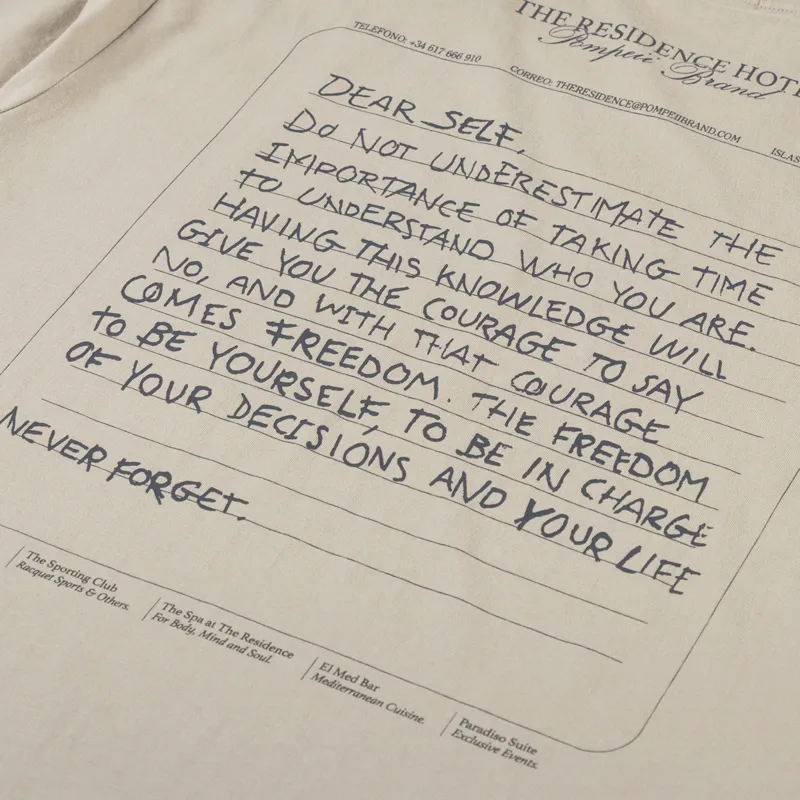 THE RESIDENCE HOTE
Pompeii Brand
TELEFONO: +34 617 666 910
CORREO: THERESIDENCE@POMPEIIBRAND.COM
ISLAS
DEAR SELF,
DO NOT UNDERESTIMATE THE
IMPORTANCE OF TAKING TIME
TO UNDERSTAND WHO YOU ARE.
HAVING THIS KNOWLEDGE WILL
GIVE YOU THE COURAGE TO SAY
NO, AND WITH THAT COURAGE
COMES FREEDOM. THE FREEDOM
TO BE YOURSELF, TO BE IN CHARGE
OF YOUR DECISIONS AND YOUR LIFE
NEVER FORGET.
The Sporting Club
Racquet Sports & Others.
The Spa at The Residence
For Body, Mind and Soul.
El Med Bar
Mediterranean Cuisine.
Paradiso Suite
Exclusive Events.